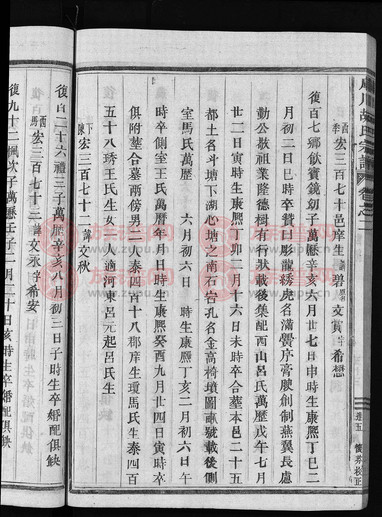 宏三百七十邑庠生 諱 碧 文賞 字 希懋
復百七鄉飲賓鏡幼子萬曆辛亥六月廿七日申時生康熙丁巳二
月初二日巳時卒贊曰彫龍綉虎名滿黌序膏腴創制燕翼長慮
勤公敭祖業隆德樹有行狀載後集配西山呂氏萬曆戊午七月
廿二日寅時生康熙丁卯二月十六日未時卒合墓本邑二十五
都土名斗塘下湖心塘之南石岩孔名金高椅墳圖載號載後側
室馬氏萬曆 六月初六日 時生康熙丁亥二月初六日
時卒側室王氏萬曆年月日時生康熙癸酉九月廿四日寅時卒
俱附墓合墓兩傍男二人泰四百十八郡庠生瓊馬氏生泰四百
五十八琇王氏生女一人適河東呂元起呂氏生
宏三百七十一 諱 文秋
復百二十六禮三子萬曆辛亥八月初三日子時生卒婚配俱缺
宏三百七十二 諱 文永 字 希安
復九十二楓次子萬曆壬子二月二十日亥時生卒婚配俱缺